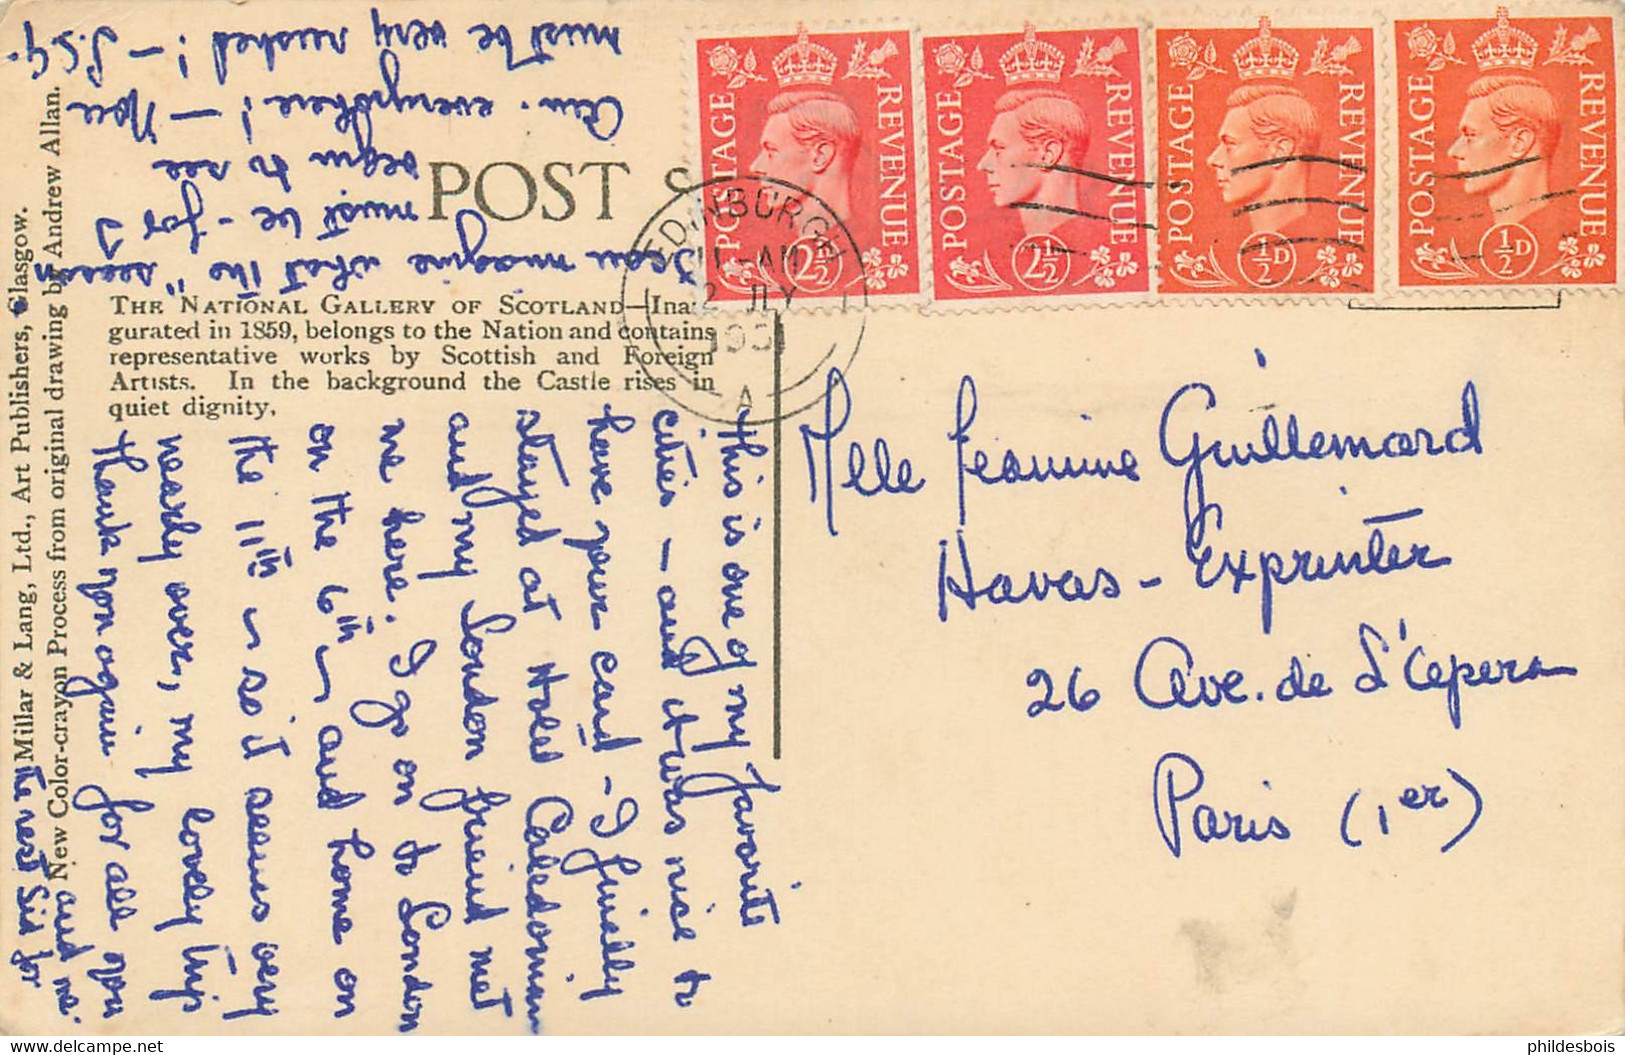 POST
THE NATIONAL GALLERY OF SCOTLAND—Inau-
gurated in 1859, belongs to the Nation and contains
representative works by Scottish and Foreign
Artists. In the background the Castle rises in
quiet dignity.
Millar & Lang, Ltd., Art Publishers, Glasgow.
New Color-crayon Process from original drawing by Andrew Allan.
POSTAGE REVENUE 2½D
POSTAGE REVENUE 2½D
POSTAGE REVENUE ½D
POSTAGE REVENUE ½D
EDINBURGH
11 - AM
2 JLY
1951
A
Melle Jeannine Guillemard
Havas - Exprinter
26 Ave. de L'Opera
Paris (1er)
This is one of my favorite
cities - and it was nice to
have your card - I finally
stayed at Hotel Caledonian
and my London friend met
me here. I go on to London
on the 6th ~ and home on
the 11th ~ so it seems very
nearly over, my lovely trip
Thank you again for all you
and
the rest did for
I can imagine what the "season"
must be - for I
begin to see
Am. everywhere! - You
must be very rushed! -
phildesbois